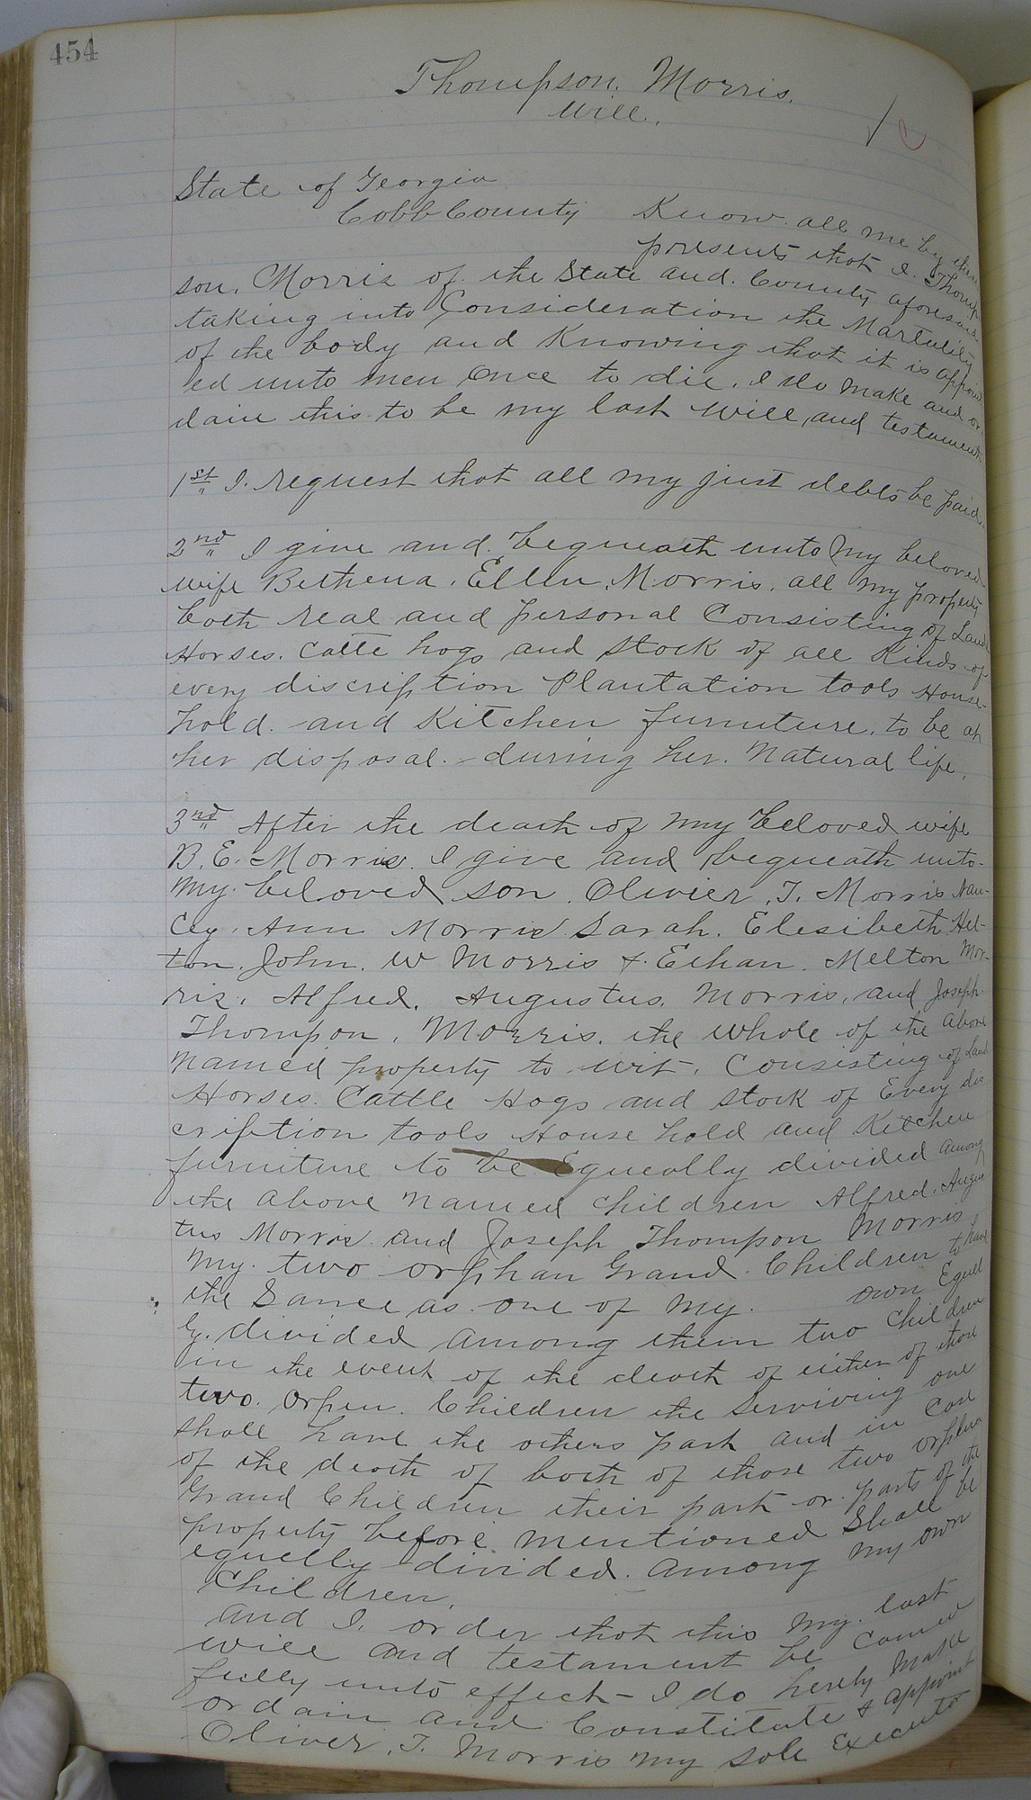 454
Thompson. Morris.
Will.
State of Georgia
Cobb County Know all me by thes
presents that I. Thomp
son. Morris of the State and. County aforesaid
taking into Consideration the Martality
of the body and Knowing that it is appoint
ed unto men Once to die. I do make and or
dain this to be my last will, and testament
1st I. request that all my just debts be paid.
2nd I give and. bequeath unto my beloved
wife Bethena. Ellen. Morris. all my property
both real and personal Consisting of Land
Horses. Catte hogs and stock of all Kinds of
every discription Plantation tools House-
hold. and Kitchen furniture. to be at
her disposal. during her. Natural life.
3rd After the death of my beloved wife
B. E. Morris. I give and bequeath unto-
my. beloved son. Olivier. T. Morris Nan-
cey. Ann Morris Sarah. Elesibeth Hel-
ton. John. W Morris &. Ethan. Melton Mor-
ris. Alfred. Augustus. Morris. and Joseph
Thompson. Morris. the whole of the above
named property to wit. Consisting of Land
Horses. Cattle Hogs and stock of Every dis
cription tools House hold and Kitchen
furniture to be Equeally divided among
the above named children Alfred. Augus
tus Morris. and Joseph Thompson Morris
my. two orphan Grand. Children to have
the Same as. one of my. own Equel
ly. divided among them two Children
in the event of the death of either of those
two. orphen. Children the Serviving one
shall have the others part and in Case
of the death of both of those two orphen
Grand Children their part or. parts of the
property before. mentioned Shall be
equelly divided. among my own
Children.
and I. order that this my. last
will and testament be Caried
fully unto effect - I do hereby make
ordain and Constitute & appoint
Oliver. T. Morris my sole Executor